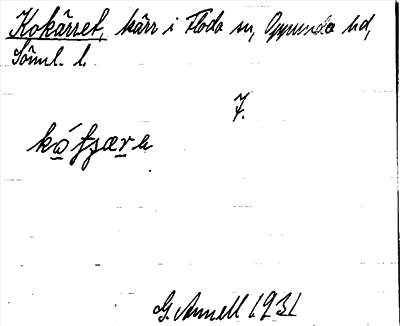 Kokärret, kärr i Floda sn, Oppunda hd,
Söml. l.
7.
G. Annell 1931